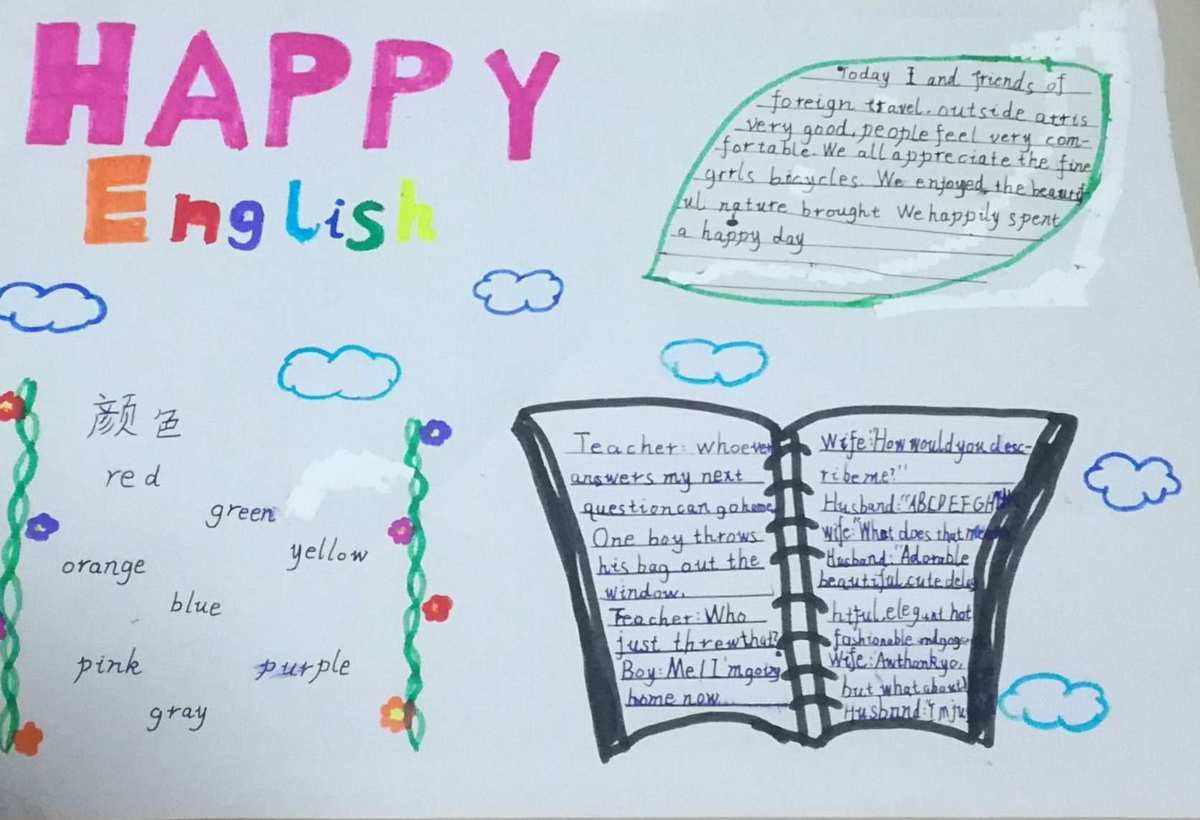 HAPPY
English
Today I and friends of
foreign travel. outside arris
very good, people feel very com-
fortable. We all appreciate the fine
grrls bicycles. We enjoyed the beautif
ul nature brought We happily spent
a happy day
颜色
red
green
yellow
orange
blue
pink
purple
gray
Teacher: whoever
answers my next
question can go home
One boy throws
his bag out the
window.
Teacher: Who
just threw that?
Boy: Me! I'm going
home now...
Wife: "How would you desc-
ribe me?"
Husband: "ABCDEFGH
wife: "What does that mean
Husband: "Adorable
beautiful, cute delig
htful, elegant hot
fashionable
Wife: Aw thank yo,
but what about
Husband: I'm ju